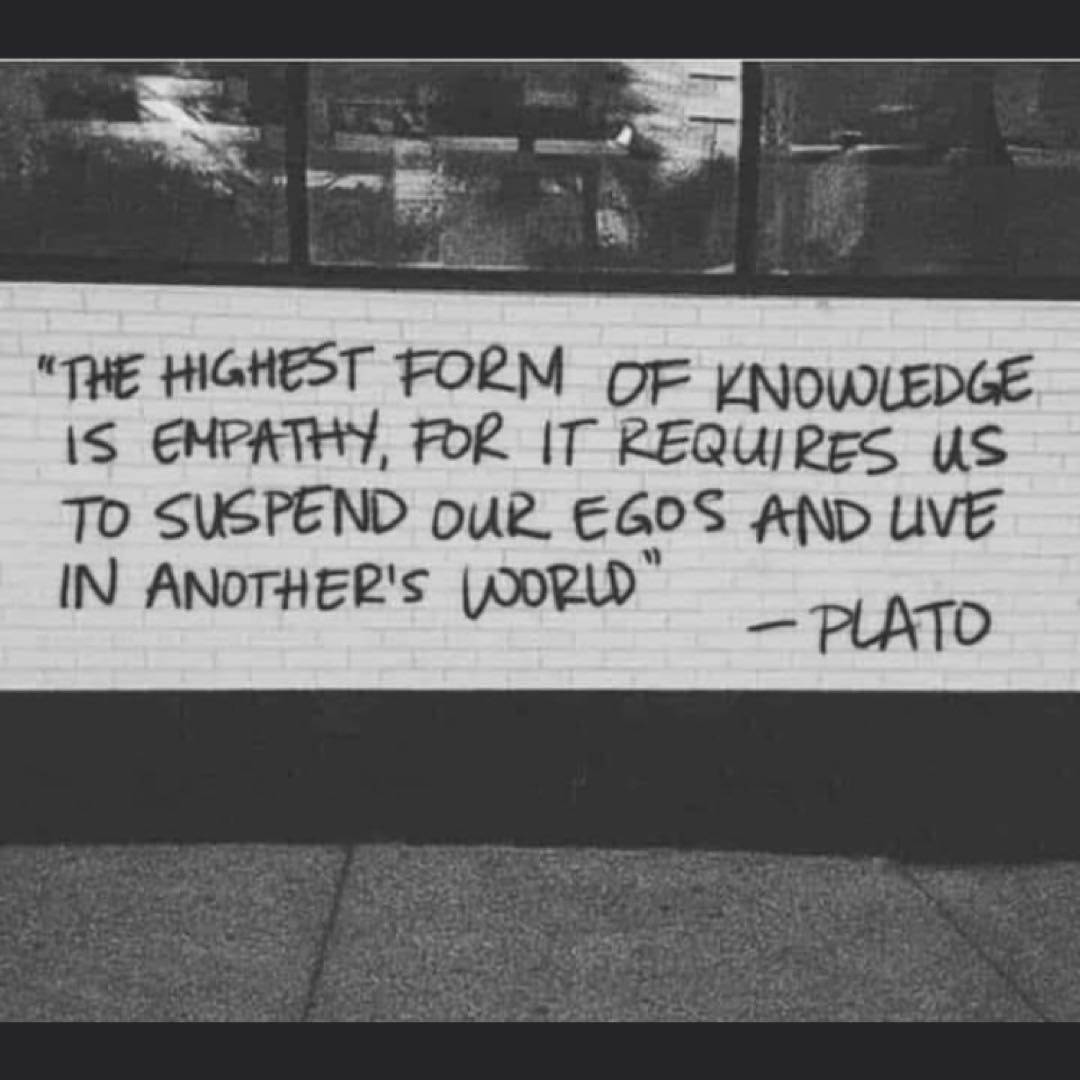 "THE HIGHEST FORM OF KNOWLEDGE
IS EMPATHY, FOR IT REQUIRES US
TO SUSPEND OUR EGOS AND LIVE
IN ANOTHER'S WORLD"
— PLATO